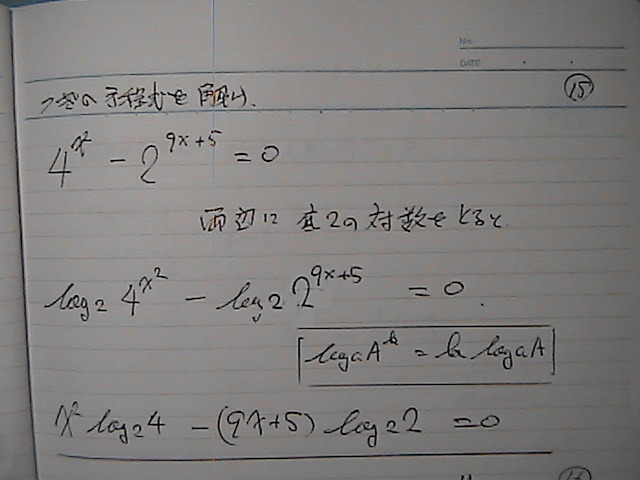 No.
DATE
つぎの方程式を解け. ⑮
4^{x^2} - 2^{9x+5} = 0
両辺に底2の対数をとると
log_2 4^{x^2} - log_2 2^{9x+5} = 0.
log_a A^k = k log_a A
x^2 log_2 4 - (9x+5) log_2 2 = 0